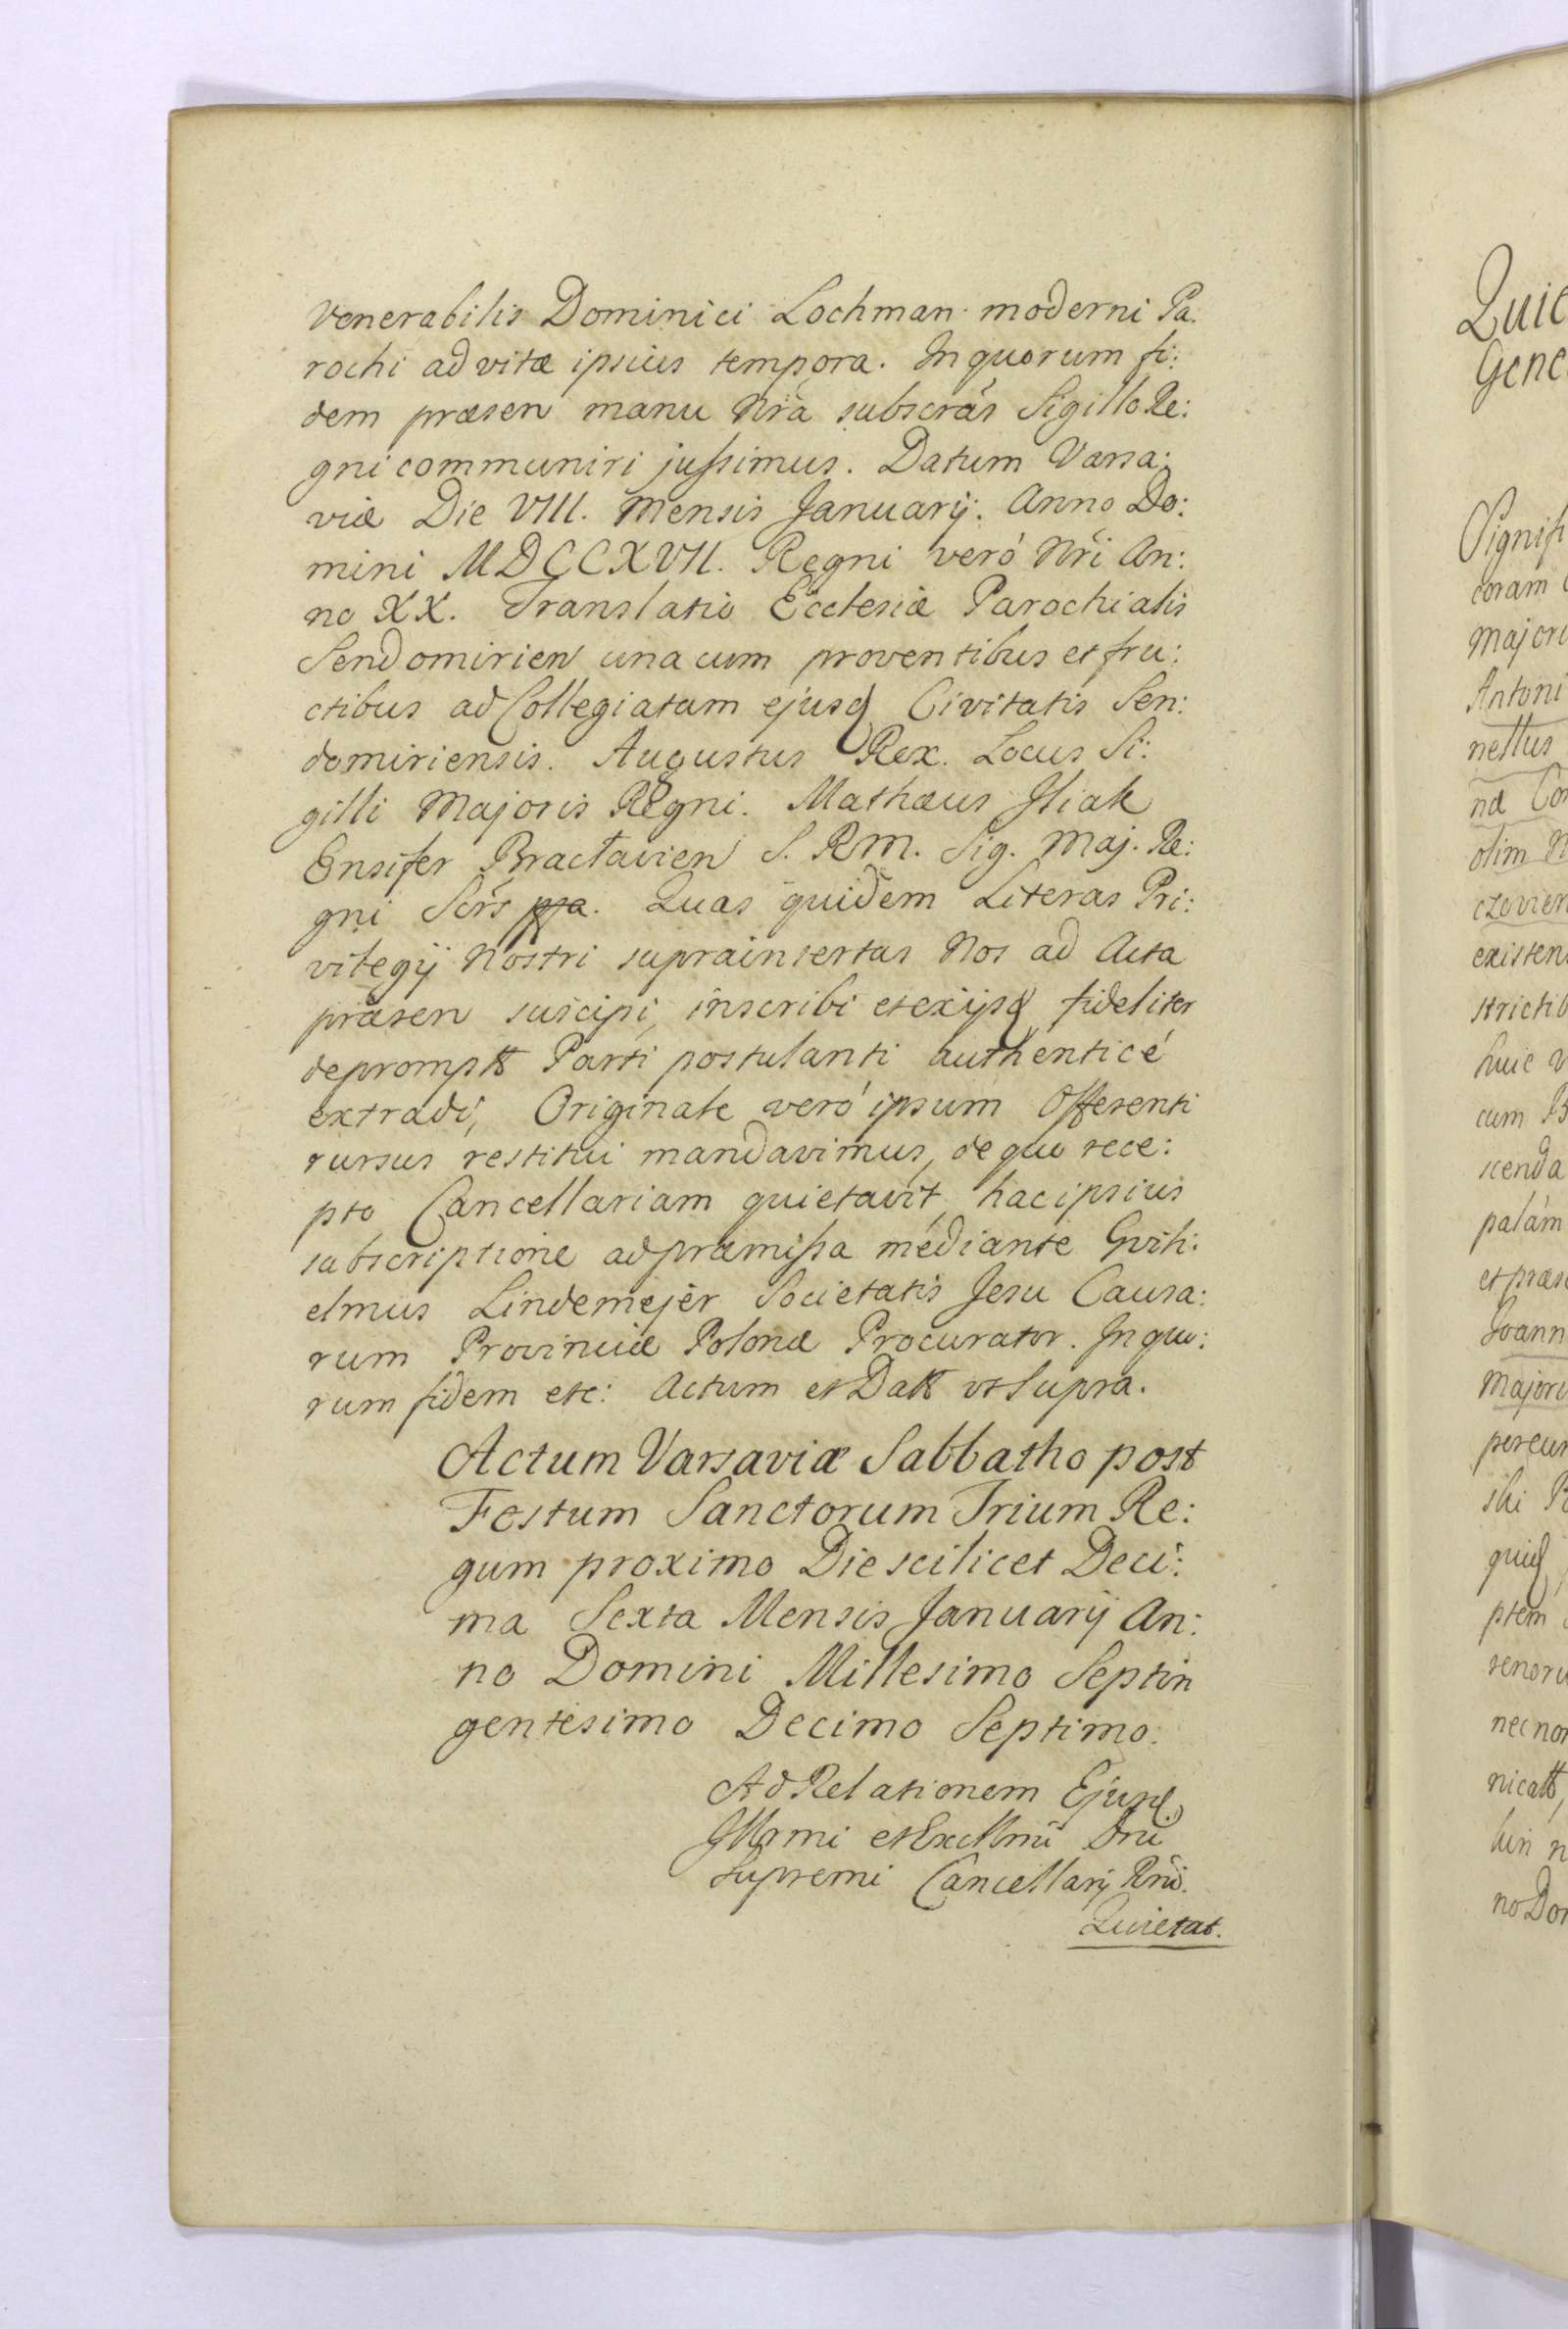 Venerabilis Dominici Lochman moderni Pa:
rochi ad vitæ ipsius tempora. In quorum fi:
dem præsen manu Nrã subscrãs Sigillo Re:
gni communiri jussimus. Datum Varsa:
viæ Die VIII. Mensis Januarij. Anno Do:
mini MDCCXVII. Regni veró Nri An:
no XX. Translatio Ecclesiæ Parochialis
Sendomirien una cum proventibus et fru:
ctibus ad Collegiatam ejusd Civitatis Sen:
domiriensis. Augustus Rex. Locus Si:
gilli Majoris Regni. Mathæus Iliak
Ensifer Bractavien S. RM. Sig. Maj. Re:
gni Scrs ppa. Quas quidem Literas Pri:
vilegij Nostri suprainsertas Nos ad Acta
præsen suscipi, inscribi et exijsd fideliter
deprompt Parti postulanti authenticé
extradi, Originale veró ipsum Offerenti
rursus restitui mandavimus, de quo rece:
pto Cancellariam quietavit, hac ipsius
subscriptione ad præmissa mediante Gvili:
elmus Lindemejer Societatis Jesu Causa:
rum Provinciæ Polonæ Procurator. In quo:
rum fidem etc: Actum et Dat ut Supra.
Actum Varsaviæ Sabbatho post
Festum Sanctorum Trium Re:
gum proximo Die scilicet Deci:
ma Sexta Mensis Januarij An:
no Domini Millesimo Septin
gentesimo Decimo Septimo.
Ad Relationem Ejusd.
Illrmi et Excllmi Dni
Supremi Cancellarij Rni.
Quietat.
Quie
Gene
Signifi
coram
Majori
Antoni
nellus
næ Co
olim N
czovien
existen
strictib
huic v
cum B
scenda
palam
et præs
Joann
Majori
percur
ski
quid
ptem
renoru
necnon
nicat
no Do